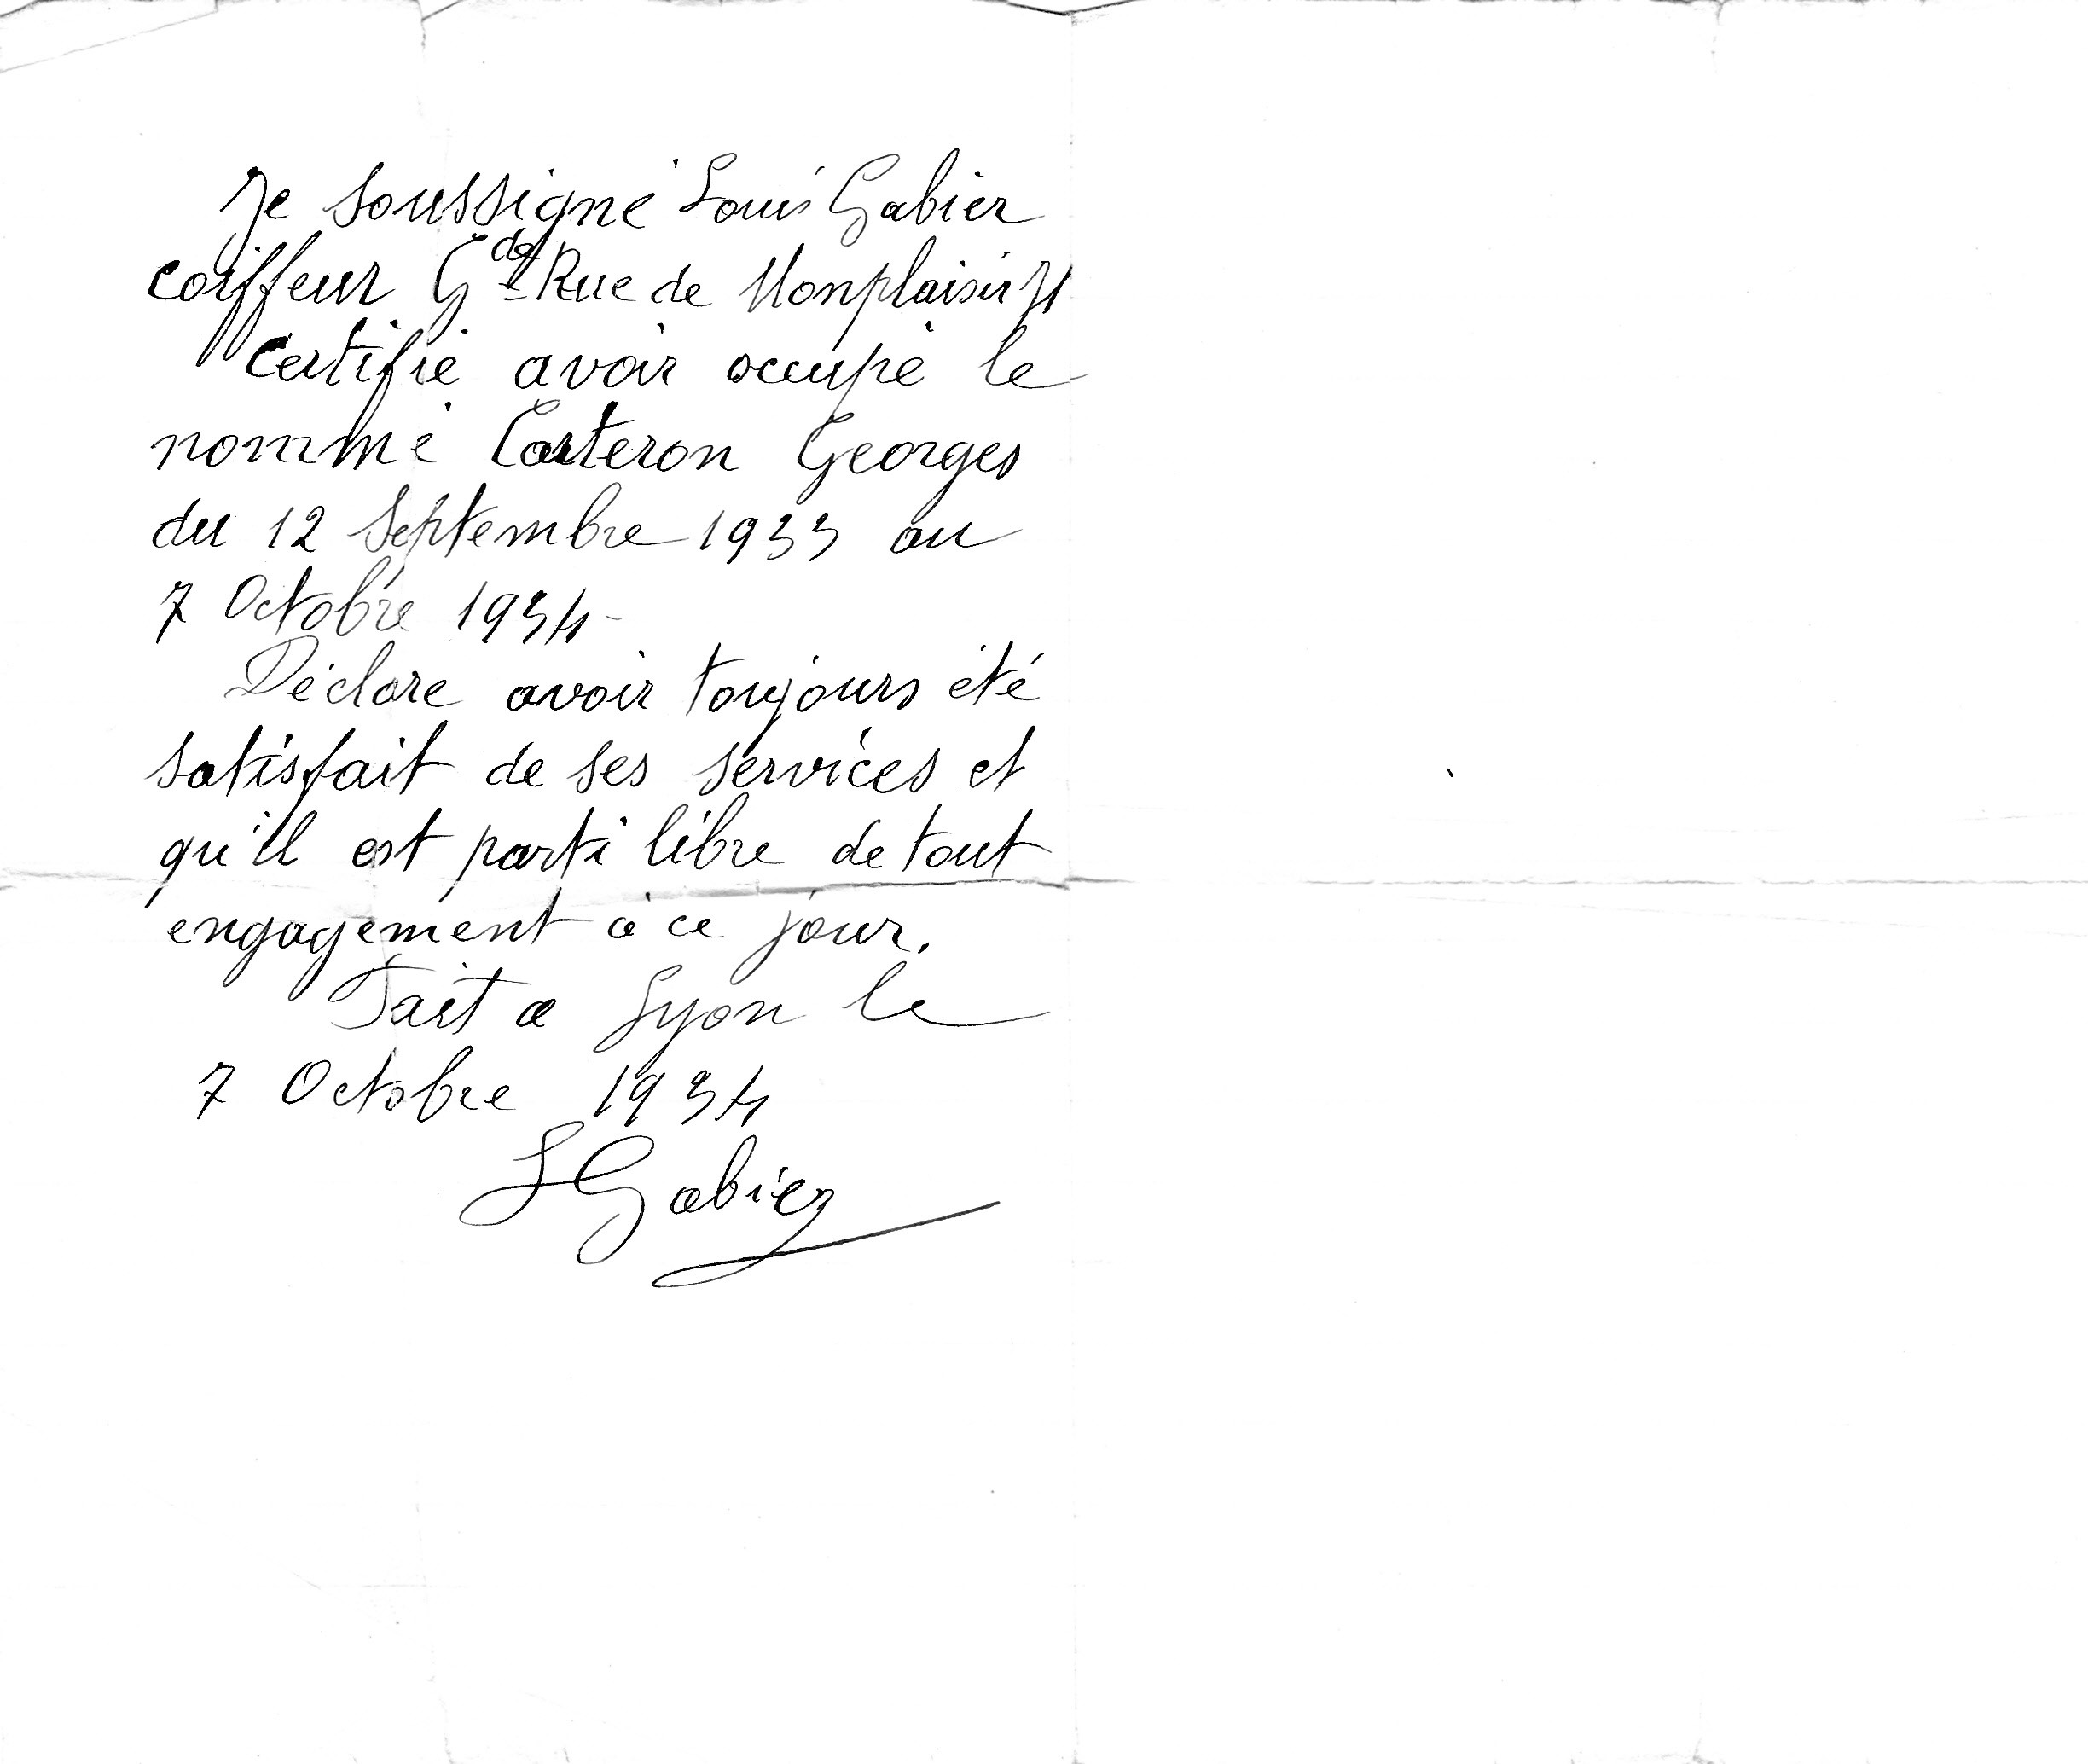 Je soussigné Louis Gabier
coiffeur Gde Rue de Monplaisir 71
certifie avoir occupé le
nommé Carteron Georges
du 12 Septembre 1933 au
7 Octobre 1934-
Déclare avoir toujours été
satisfait de ses services et
qu'il est parti libre de tout
engagement à ce jour.
Fait a Lyon le
7 Octobre 1934
LGabier